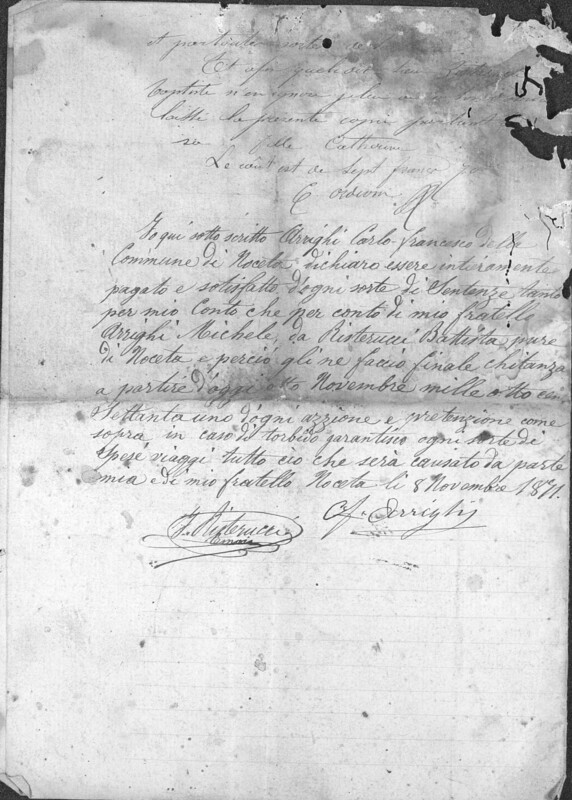 et
Et afin que
Baptiste n'en ignore je lui ai
laissé la présente copie parlant
sa fille Catherine
Le coût est de sept francs
Io qui sotto scritto Arrighi Carlo-francesco della
Commune di Noceta, dichiaro essere intieramente
pagato e sotisfatto d'ogni sorte di Sentenze tanto
per mio Conto che per conto di mio fratello
Arrighi Michele, da Risterucci Battista pure
di Noceta e percio gli ne faccio finale chitanza
a partire d'oggi otto Novembre mille otto cen
Settanta uno d'ogni azzione e pretenzione come
sopra in caso di torbido garantino ogni sorte di
spese viaggi tutto cio che serà causato da parte
mia e di mio fratello Noceta li 8 Novembre 1871.
C. f. Arrighi
Risterucci